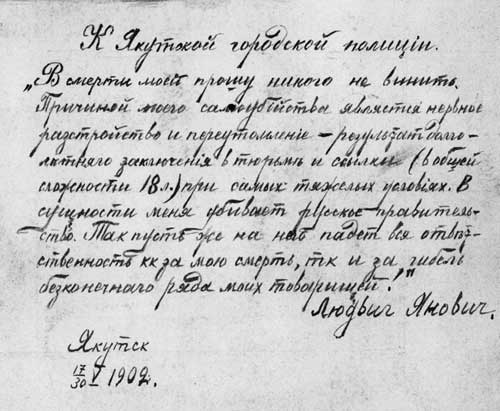 К Якутской городской полиціи.
„В смерти моей прошу никого не винить.
Причиной моего самоубійства является нервное
разстройство и переутомленіе – результат долго-
лѣтняго заключенія в тюрьмѣ и ссылки (в общей
сложности 18 л.) при самых тяжелых условіях. В
сущности меня убивает русское правитель-
ство. Так пусть же на неё падет вся отвѣт-
ственность как за мою смерть, так и за гибель
безконечнаго ряда моих товарищей!"
Людвиг Янович.
Якутск
17/30 V 1902.